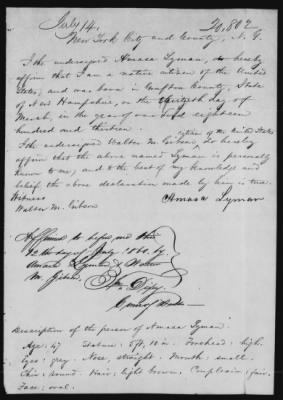 July 14. 20,802
New York City and County, N. Y.
I the undersigned Amasa Lyman, do hereby
affirm that I am a native citizen of the United
States, and was born in Grafton County, State
of New Hampshire, on the thirtieth day of
March, in the year of our Lord eighteen
hundred and thirteen.
citizen of the United States
I the undersigned Walter M. Gibson, do hereby
affirm that the above named Lyman is personally
known to me; and to the best of my knowledge and
belief the above declaration made by him is true.
Witness
Amasa Lyman
Walter M. Gibson
Affirmed to before me this
12th day of July 1860. by
Amasa Lyman & Walter
M. Gibson
Com of Deeds
Description of the person of Amasa Lyman.
Age: 47 Stature: 5ft, 10 in. Forehead: high.
Eyes: grey. Nose, straight. Mouth: small.
Chin: round. Hair: light brown. Complexion: fair.
Face: oval.